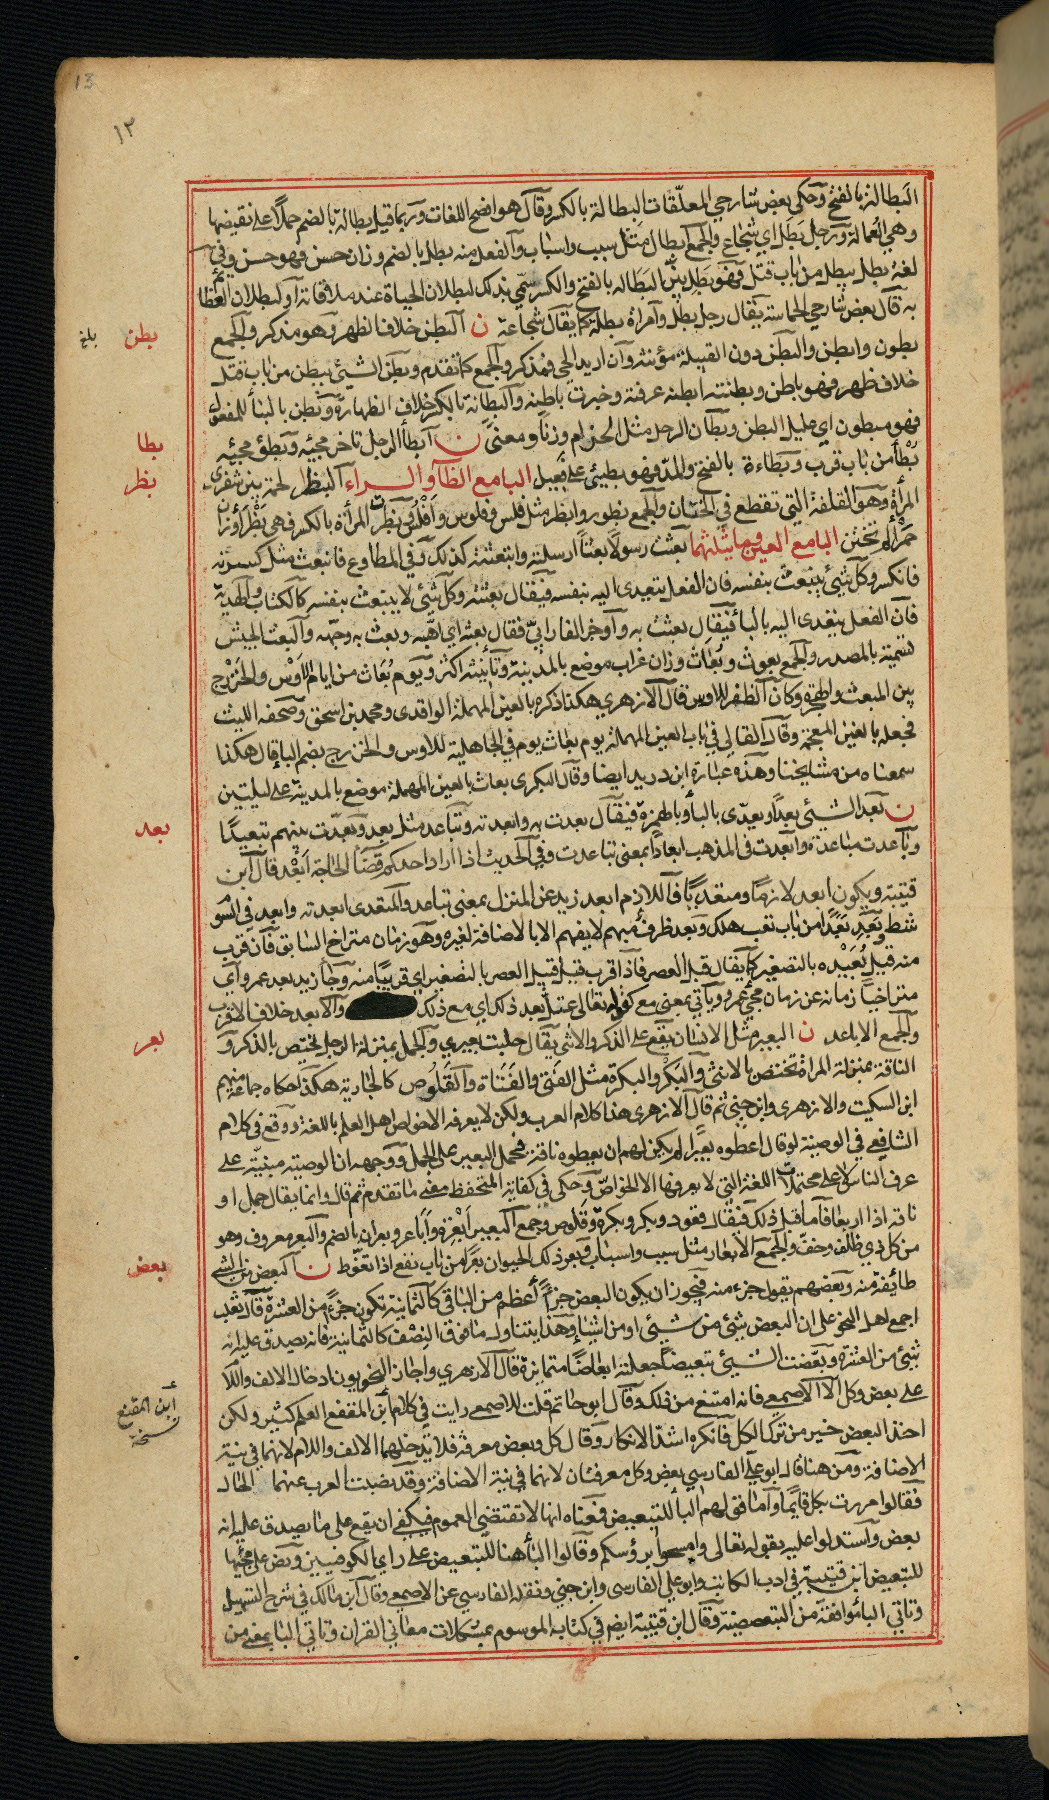 13
١٣
البطالة بالفتح وحكى بعض شارحي المعلقات البطالة بالكسر وقال هو افصح اللغات وربما قيل بطالة بالضم حملا على نقيضها
وهي العمالة ورجل بطل اي شجاع والجمع ابطال مثل سبب واسباب والفعل منه بطل بالضم وزان حسن فهو حسن وفي
لغة بطل يبطل من باب قتل فهو بطل بيّن البطاله بالفتح والكسر سمّي بذلك لبطلان الحياة عند ملاقاته او لبطلان العظائم
به قال بعض شارحي الحماسة يقال رجل بطل وامراة بطلة كما يقال شجاعة ن البطن خلاف الظهر وهو مذكر والجمع
بطن
بلغ
بطون وابطن والبطن دون القبيلة مؤنثة وان اريد الحي فمذكر والجمع كما تقدم وبطن الشيئ يبطن من باب قتل
خلاف ظهر فهو باطن وبطنته ابطنه عرفته وخبرت باطنه والبطانة بالكسر خلاف الظهارة وبطن بالبناء للمفعول
فهو مبطون اي عليل البطن وبطان الرحل مثل الحزام وزنا ومعنى ن ابطأ الرجل تاخر مجيئه وبطؤ مجيئه
بطا
بطأ من باب قرب وبطاءة بالفتح والمد فهو بطيئ على فعيل البا مع الظا والراء البظر لحمة بين شفري
بظر
المرأة وهو القلفة التي تقطع في الختان والجمع بظور وابظر مثل فلس وفلوس وافلس وبظرت المرأة بالكسر فهي بظراء وزان
حمراء لم تختن البا مع العين وما يثلثهما بعثت رسولا بعثا ارسلته وابتعثته كذلك وفي المطاوع فانبعث مثل كسرته
فانكسر وكل شيئ ينبعث بنفسه فان الفعل يتعدى اليه بنفسه فيقال بعثته وكل شيئ لا ينبعث بنفسه كالكتاب والهدية
فان الفعل يتعدى اليه بالباء فيقال بعثت به واوجز الفارابي فقال بعثه اي اهبّه وبعث به وجهه والبعث الجيش
تسمية بالمصدر والجمع بعوث وبعاث وزان غراب موضع بالمدينة وتأنيثه اكثر ويوم بعاث من ايام الاوس والخزرج
بين المبعث والهجرة وكان الظفر للاوس قال الازهري هكذا ذكره بالعين المهملة الواقدى ومحمد بن اسحق وصحفه الليث
فجعله بالغين المعجمة وقال القالي في باب العين المهملة يوم بعاث يوم في الجاهلية للاوس والخزرج بضم البا قال هكذا
سمعناه من مشايخنا وهذه عبارة ابن دريد ايضا وقال البكرى بعاث بالعين المهملة موضع بالمدينة على ليلتين
ن بعد الشيئ بعدا ويعدى بالبا وبالهمزة فيقال بعدت به وابعدته وتباعد مثل بعد وبعدت بينهم تبعيدا
بعد
وباعدت مباعدة وابعدت في المذهب ابعادا بمعنى تباعدت وفي الحديث اذا اراد احدكم قضا الحاجة ابعد قال ابن
قتيبة ويكون ابعد لازما ومتعديا فاللازم ابعد زيد عن المنزل بمعنى تباعد والمتعدى ابعدته وابعد في السوم
شط وبعد بعدا من باب تعب هلك وبعد ظرف مبهم لا يفهم الا بالاضافة لغيره وهو زمان متراخ السابق فان قرب
منه قيل بعيده بالتصغير كما يقال قبل العصر فاذا قرب قيل قبيل العصر بالتصغير اي قريبا منه وجاء زيد بعد عمرو اي
متراخيا زمانه عن زمان مجيئ عمرو وياتي بمعنى مع كقوله تعالى عتل بعد ذلك اي مع ذلك والابعد خلاف الاقرب
والجمع الاباعد ن البعير مثل الانسان يقع على الذكر والانثى يقال حلبت بعيري والجمل بمنزلة الرجل يختص بالذكر و
بعر
الناقة بمنزلة المراة تختص بالانثى والبكر والبكرة مثل الفتى والفتاة والقلوص كالجارية هكذا حكاه جماعة منهم
ابن السكيت والازهرى وابن جني ثم قال الازهرى هذا كلام العرب ولكن لا يعرفه الا خواص اهل العلم باللغة ووقع في كلام
الشافعي في الوصية لو قال اعطوه بعيرا لم يكن لهم ان يعطوه ناقة فحمل البعير على الجمل ووجهه ان الوصية مبنية على
عرف الناس لا على محتملات اللغة التي لا يعرفها الا الخواص وحكى في كفاية المتحفظ معنى ما تقدم ثم قال وانما يقال جمل او
ناقة اذا اربعا فاما قبل ذلك فيقال قعود وبكر وبكرة وقلوص وجمع البعير ابعرة واباعر وبعران بالضم والبعر معروف وهو
من كل ذي ظلف وخف والجمع الابعار مثل سبب واسباب وبعر ذلك الحيوان بعرا من باب نفع اذا تغوط ن البعض من الشيء
بعض
طائفة منه وبعضهم يقول جزء منه فيجوز ان يكون البعض جزأ اعظم من الباقي كالثمانية تكون جزءا من العشرة قال ثعلب
اجمع اهل النحو على ان البعض شيئ من شيئ او من اشياء وهذا يتناول ما فوق النصف كالثمانية فانه يصدق عليه انه
شيئ من العشرة وبعضت الشيئ تبعيضا جعلته ابعاضا متمايزة قال الازهري واجاز النحويون ادخال الالف واللام
على بعض وكل الا الاصمعي فانه امتنع من ذلك وقال ابو حاتم قلت للاصمعى رايت في كلام ابن المقفع العلم كثير ولكن
ابن المقنع
نسخة
اخذ البعض خير من ترك الكل فانكره اشد الانكار وقال كل وبعض معرفة فلا تدخلهما الالف واللام لانهما في نية
الاضافة ومن هنا قال ابو علي الفارسي بعض وكل معرفتان لانهما في نية الاضافة وقد نصبت العرب عنهما الحال
فقالوا مررت بكل قائما واما قولهم البا للتبعيض فمعناه انها لا تقتضي العموم فيكفى ان يقع على ما يصدق عليه انه
بعض واستدلوا عليه بقوله تعالى وامسحوا برؤسكم وقالوا البا هنا للتبعيض على راي الكوفيين ونص على مجيئها
للتبعيض ابن قتيبة في ادب الكاتب وابو علي الفارسى وابن جني ونقله الفارسي عن الاصمعي وقال ابن مالك في شرح التسهيل
وتاتي البا موافقة من التبعيضية وقال ابن قتيبة ايضم في كتابه الموسوم بمشكلات معاني القران وتاتي البا بمعنى من